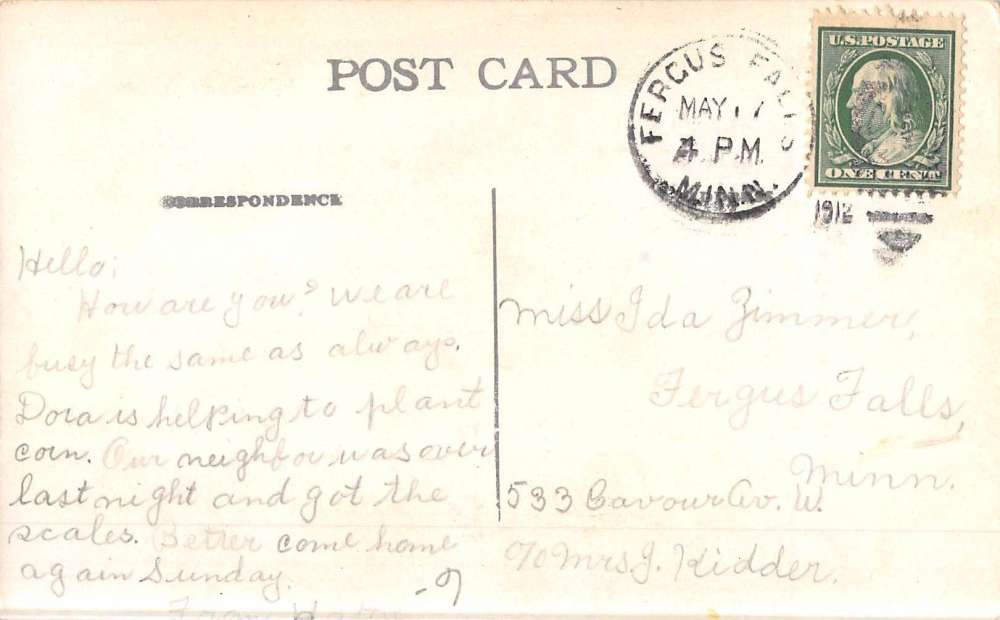 POST CARD
FERGUS FALLS
MAY 17
4 P.M.
MINN.
1912
U.S. POSTAGE
ONE CENT
CORRESPONDENCE
Hello;
How are you? We are
busy the same as always.
Dora is helping to plant
corn. Our neighbor was over
last night and got the
scales. Better come home
again Sunday.
From
Miss Ida Zimmer,
Fergus Falls,
Minn.
533 Cavour Av. W.
c/o Mrs J. Kidder.